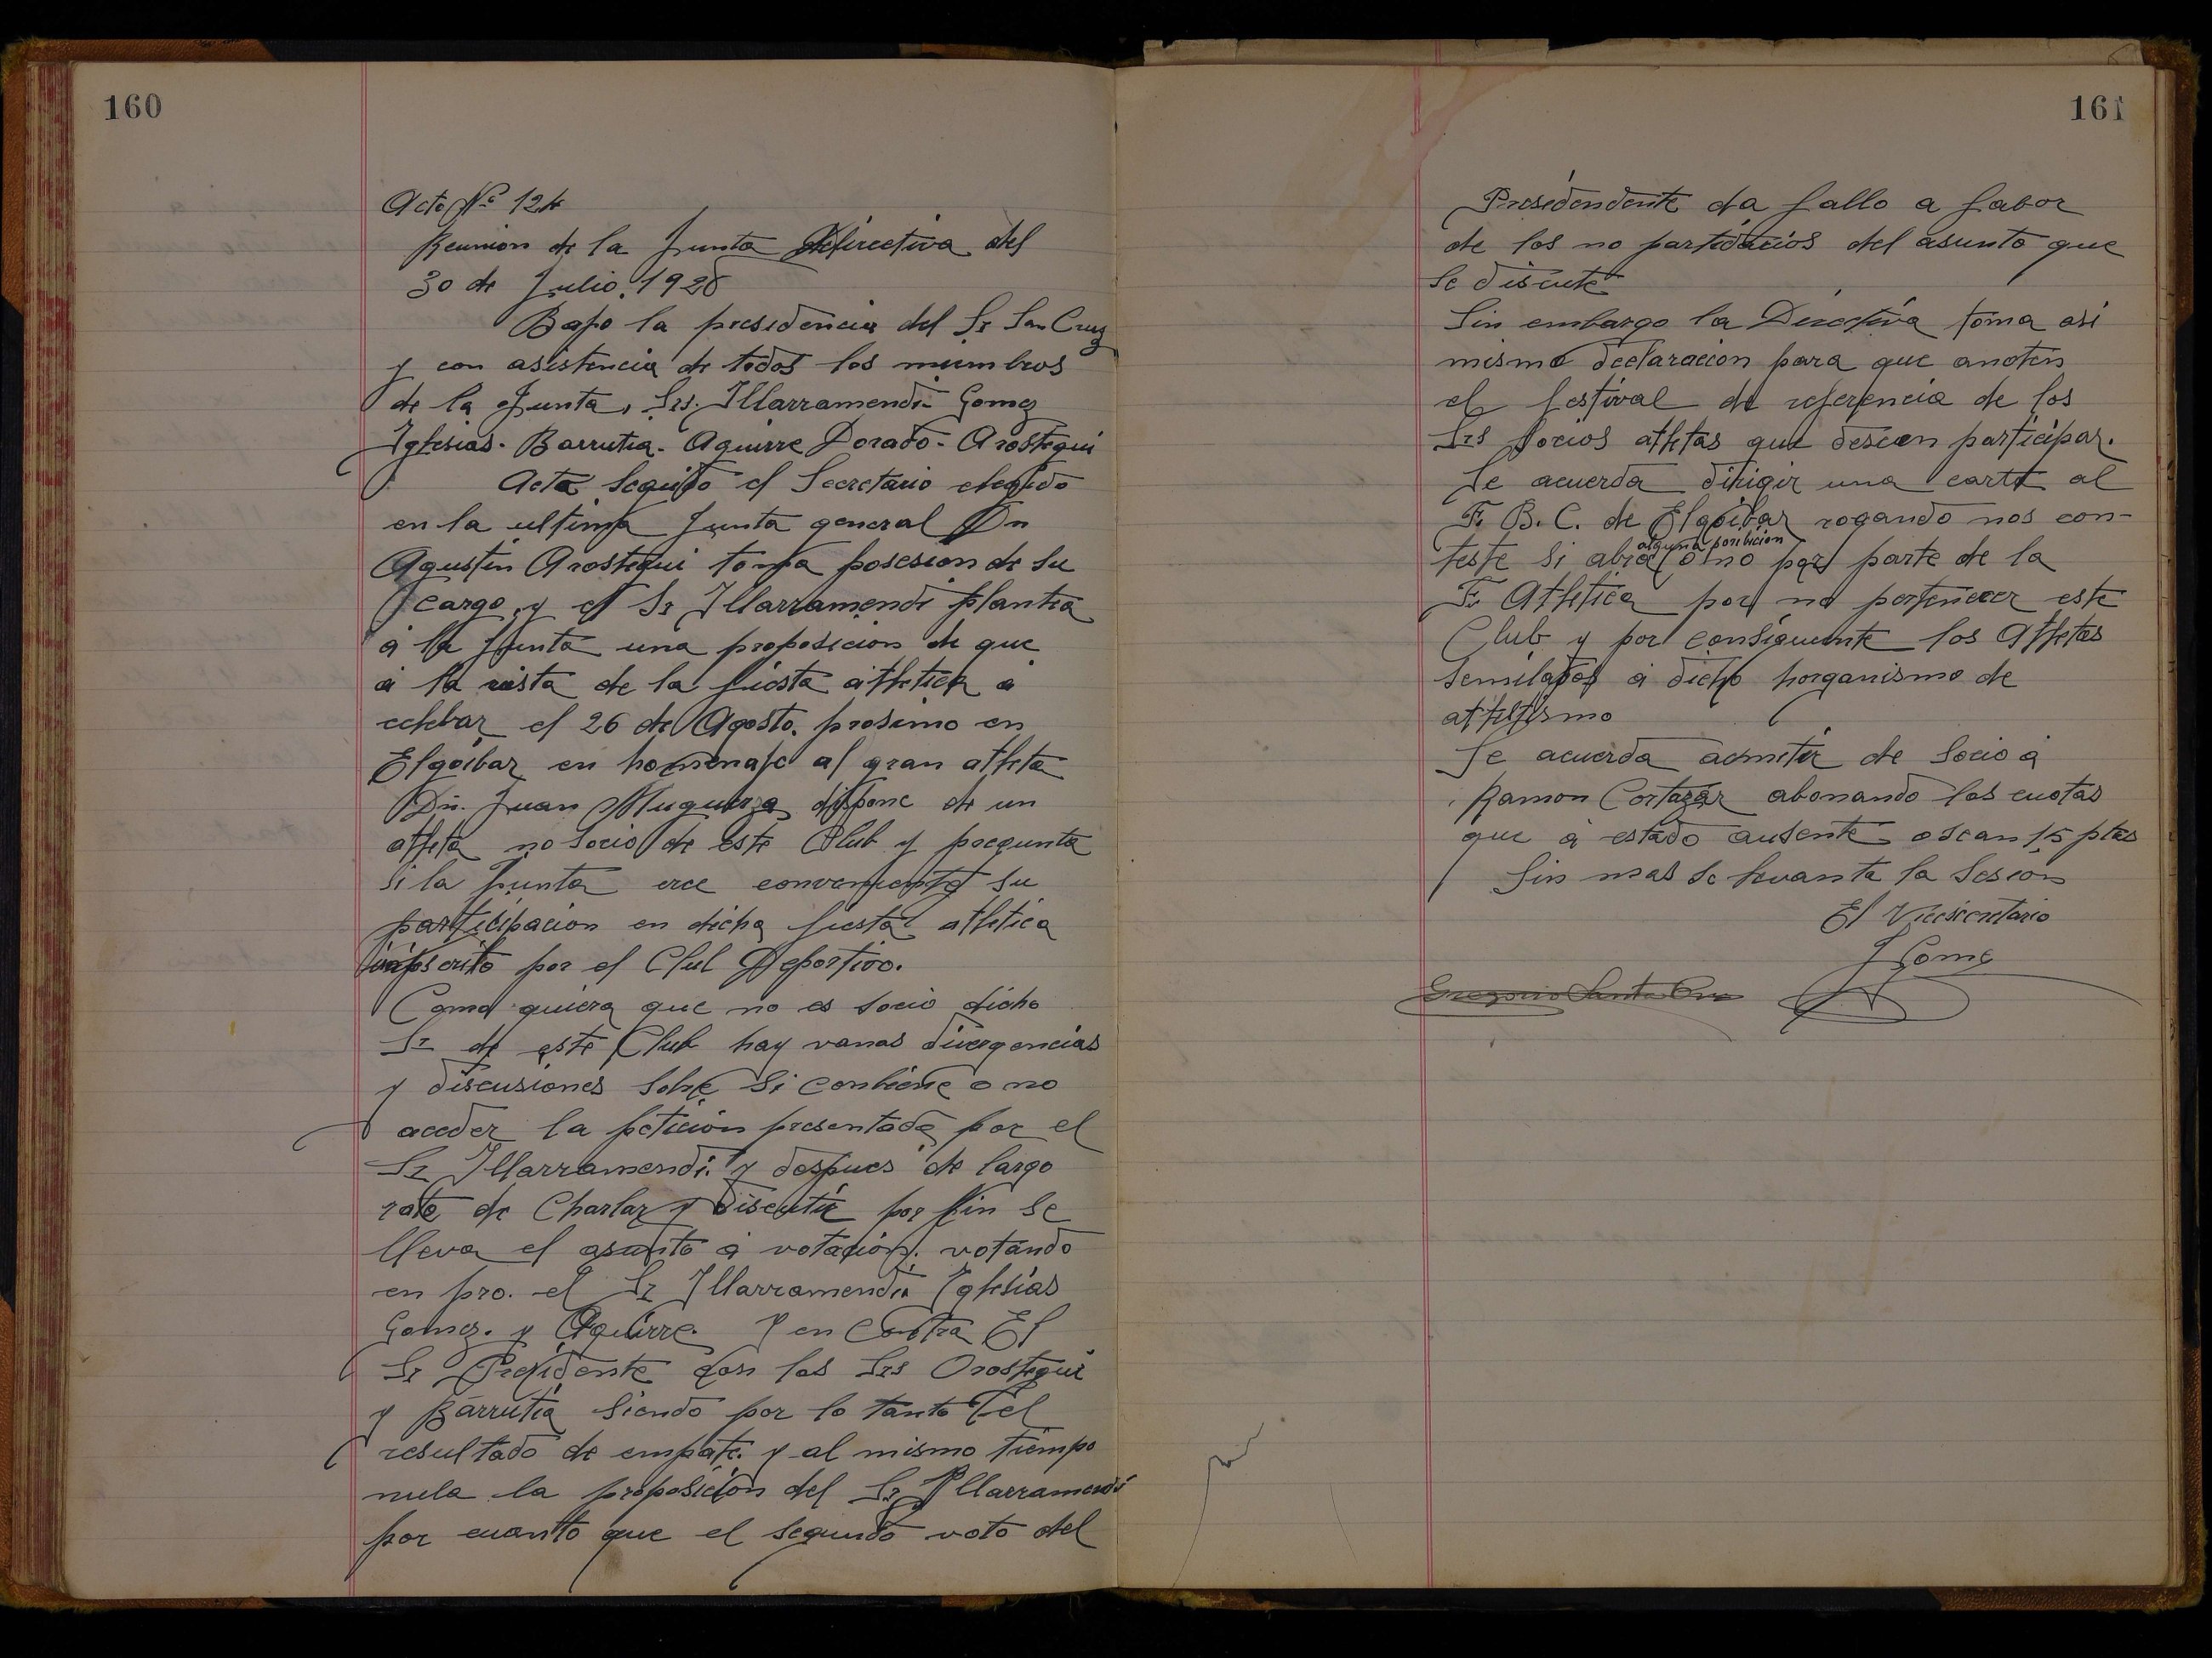 160
Acta Nº 124
Reunion de la Junta Directiva del
30 de Julio, 1928
Bajo la presidencia del Sr San Cruz
y con asistencia de todos los miembros
de la Junta, Srs. Illarramendi- Gomez
Iglesias- Barrutia- Aguirre Dorado- Arostegui
Acto seguido el Secretario elegido
en la ultima Junta general Dn
Agustin Arostegui toma posesion de su
cargo, y el Sr Illarramendi plantea
á la Junta una proposicion de que
á la vista de la fiesta athletica á
celebar el 26 de Agosto. prosimo en
Elgoibar en homenaje al gran athleta
Dn. Juan Muguerza, dispone de un
athleta no socio de este Club y pregunta
si la Junta cree conveniente su
participacion en dicha fiesta athletica
inscrito por el Club Deportivo.
Como quiera que no es socio dicho
Sr de este Club hay varias divergencias
y discusiones sobre si conbiene o no
acceder la peticion presentada por el
Sr Illarramendi. y despues de largo
rato de Charlar y discutir por fin se
lleva el asunto á votación. votando
en pro. el Sr Illarramendi Iglesias
Gomez. y Aguirre. Y en Contra El
Sr Presidente con los Srs Orostegui
y Barrutia siendo por lo tanto el
resultado de empate. y al mismo tiempo
nula la proposición del Sr Illarramendi
por cuanto que el segundo voto del
161
Presidendente da fallo a fabor
de los no partidarios del asunto que
se discute
Sin embargo la Directiva toma asi
mismo declaracion para que anoten
el festival de referencia de los
Srs Socios athletas que deseen participar.
Se acuerda dirigir una carta al
F. B. C. de Elgoibar rogando nos con-
alguna
teste si abra o no por parte de la
F. Athletica por no pertenecer este
Club y por consiguiente los Athletas
semilados á dicho horganismo de
athletismo
Se acuerda admitir de socio á
Ramon Cortazar abonando las cuotas
que á estado ausente o sean 15 ptas
Sin mas se levanta la Sesión
El Vicesecretario
J Gomez
Gregorio Santa Cruz